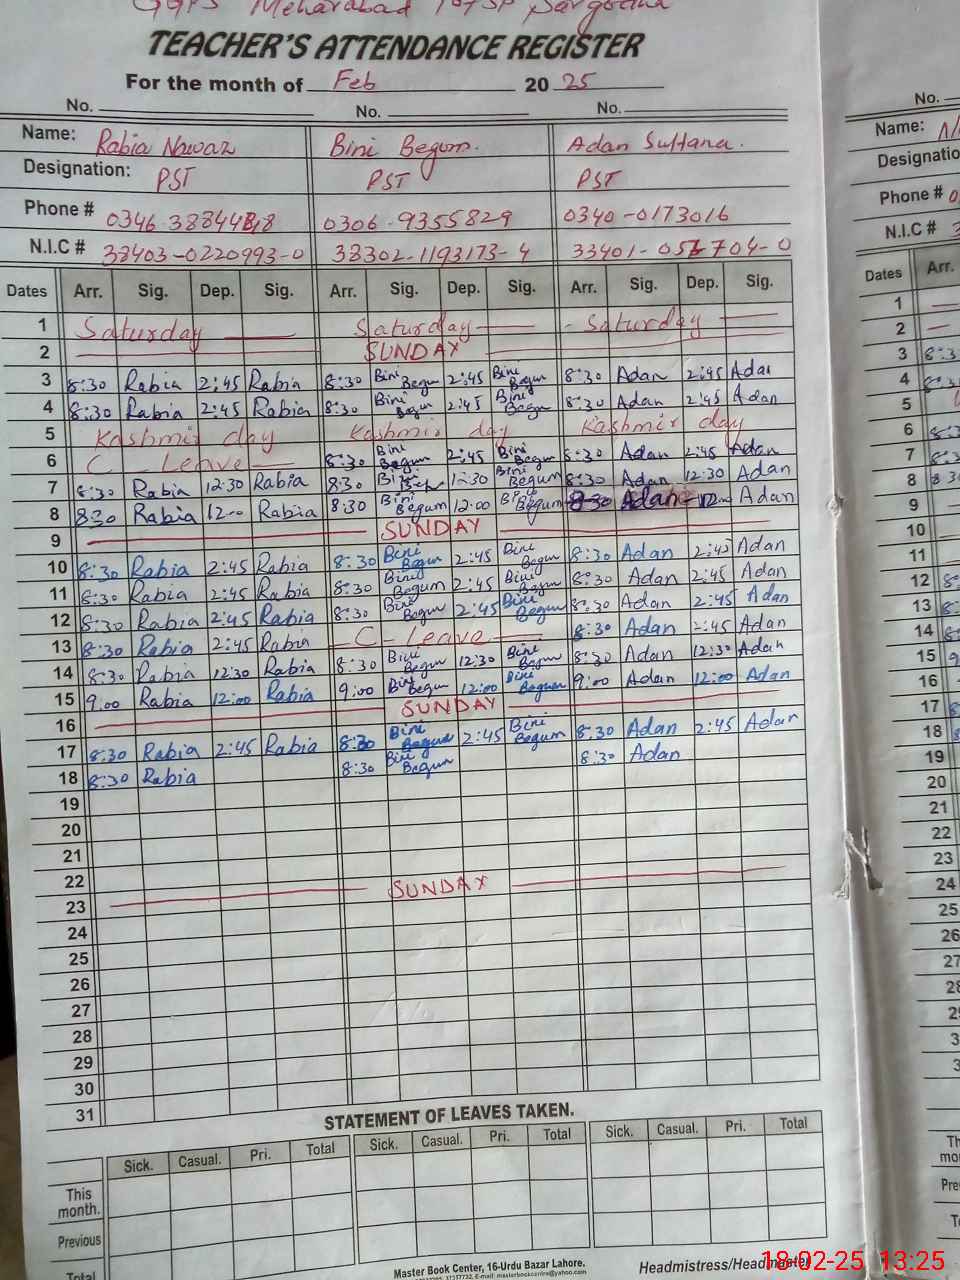 GGPS Meharabad
TEACHER'S ATTENDANCE REGISTER
For the month of Feb 20 25
No. No. No.
Name: Rabia Nawaz Bini Begum. Adan Sultana.
Designation: PST PST PST
Phone # 0306-9355829 0340-0173016
N.I.C # 38403-0220993-0 38302-1193173-4
Dates Arr. Sig. Dep. Sig. Arr. Sig. Dep. Sig. Arr. Sig. Dep. Sig.
1 Saturday Saturday Saturday
2 SUNDAY
3 8:30 Rabia 2:45 Rabia 8:30 Bini Begum 2:45 Bini Begum 8:30 Adan 2:45 Adan
4 8:30 Rabia 2:45 Rabia 8:30 Bini Begum 2:45 Bini Begum 8:30 Adan 2:45 Adan
5 Kashmir day Kashmir day Kashmir day
6 C-Leave 8:30 Bini Begum 2:45 Bini Begum 8:30 Adan 2:45 Adan
7 8:30 Rabia 12:30 Rabia 8:30 Bini 12:30 Bini Begum 8:30 Adan 12:30 Adan
8 8:30 Rabia 12:00 Rabia 8:30 Bini Begum 12:00 Begum 8:30 Adan Adan
9 SUNDAY
10 8:30 Rabia 2:45 Rabia 8:30 Bini Begum 2:45 Bini Begum 8:30 Adan 2:45 Adan
11 8:30 Rabia 2:45 Rabia 8:30 Bini Begum 2:45 Bini Begum 8:30 Adan 2:45 Adan
12 8:30 Rabia 2:45 Rabia 8:30 Bini Begum 2:45 Bini Begum 8:30 Adan 2:45 Adan
13 8:30 Rabia 2:45 Rabia C-Leave 8:30 Adan 2:45 Adan
14 8:30 Rabia 12:30 Rabia 8:30 Bini Begum 12:30 Bini Begum 8:30 Adan 12:30 Adan
15 9:00 Rabia 12:00 Rabia 9:00 Bini Begum 12:00 Bini Begum 9:00 Adan 12:00 Adan
16 SUNDAY
17 8:30 Rabia 2:45 Rabia 8:30 Bini Begum 2:45 Bini Begum 8:30 Adan 2:45 Adan
18 8:30 Rabia 8:30 Bini Begum 8:30 Adan
19
20
21
22
23 SUNDAY
24
25
26
27
28
29
30
31
STATEMENT OF LEAVES TAKEN.
Sick. Casual. Pri. Total Sick. Casual. Pri. Total Sick. Casual. Pri. Total
This month.
Previous
Total
Master Book Center, 16-Urdu Bazar Lahore.
Headmistress/Headmaster
No.
Name:
Designatio
Phone #
N.I.C #
Dates Arr.
1
2
3
4
5
6
7
8
9
10
11
12
13
14
15
16
17
18
19
20
21
22
23
24
25
26
27
28
18-02-25 13:25